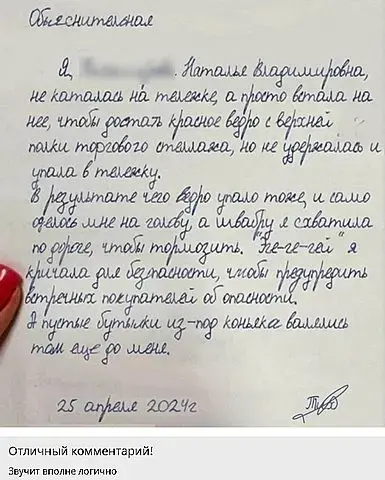 Объяснительная
Я, Наталья Владимировна,
не каталась на тележке, а просто встала на
нее, чтобы достать красное ведро с верхней
полки торгового стеллажа, но не удержалась и
упала в тележку.
В результате чего ведро упало тоже, и само
оделось мне на голову, а швабру я схватила
по дороге, чтобы тормозить. "Эге-ге-гей" я
кричала для безопасности, чтобы предупредить
встречных покупателей об опасности.
А пустые бутылки из-под коньяка валялись
там еще до меня.
25 апреля 2024г
Отличный комментарий!
Звучит вполне логично